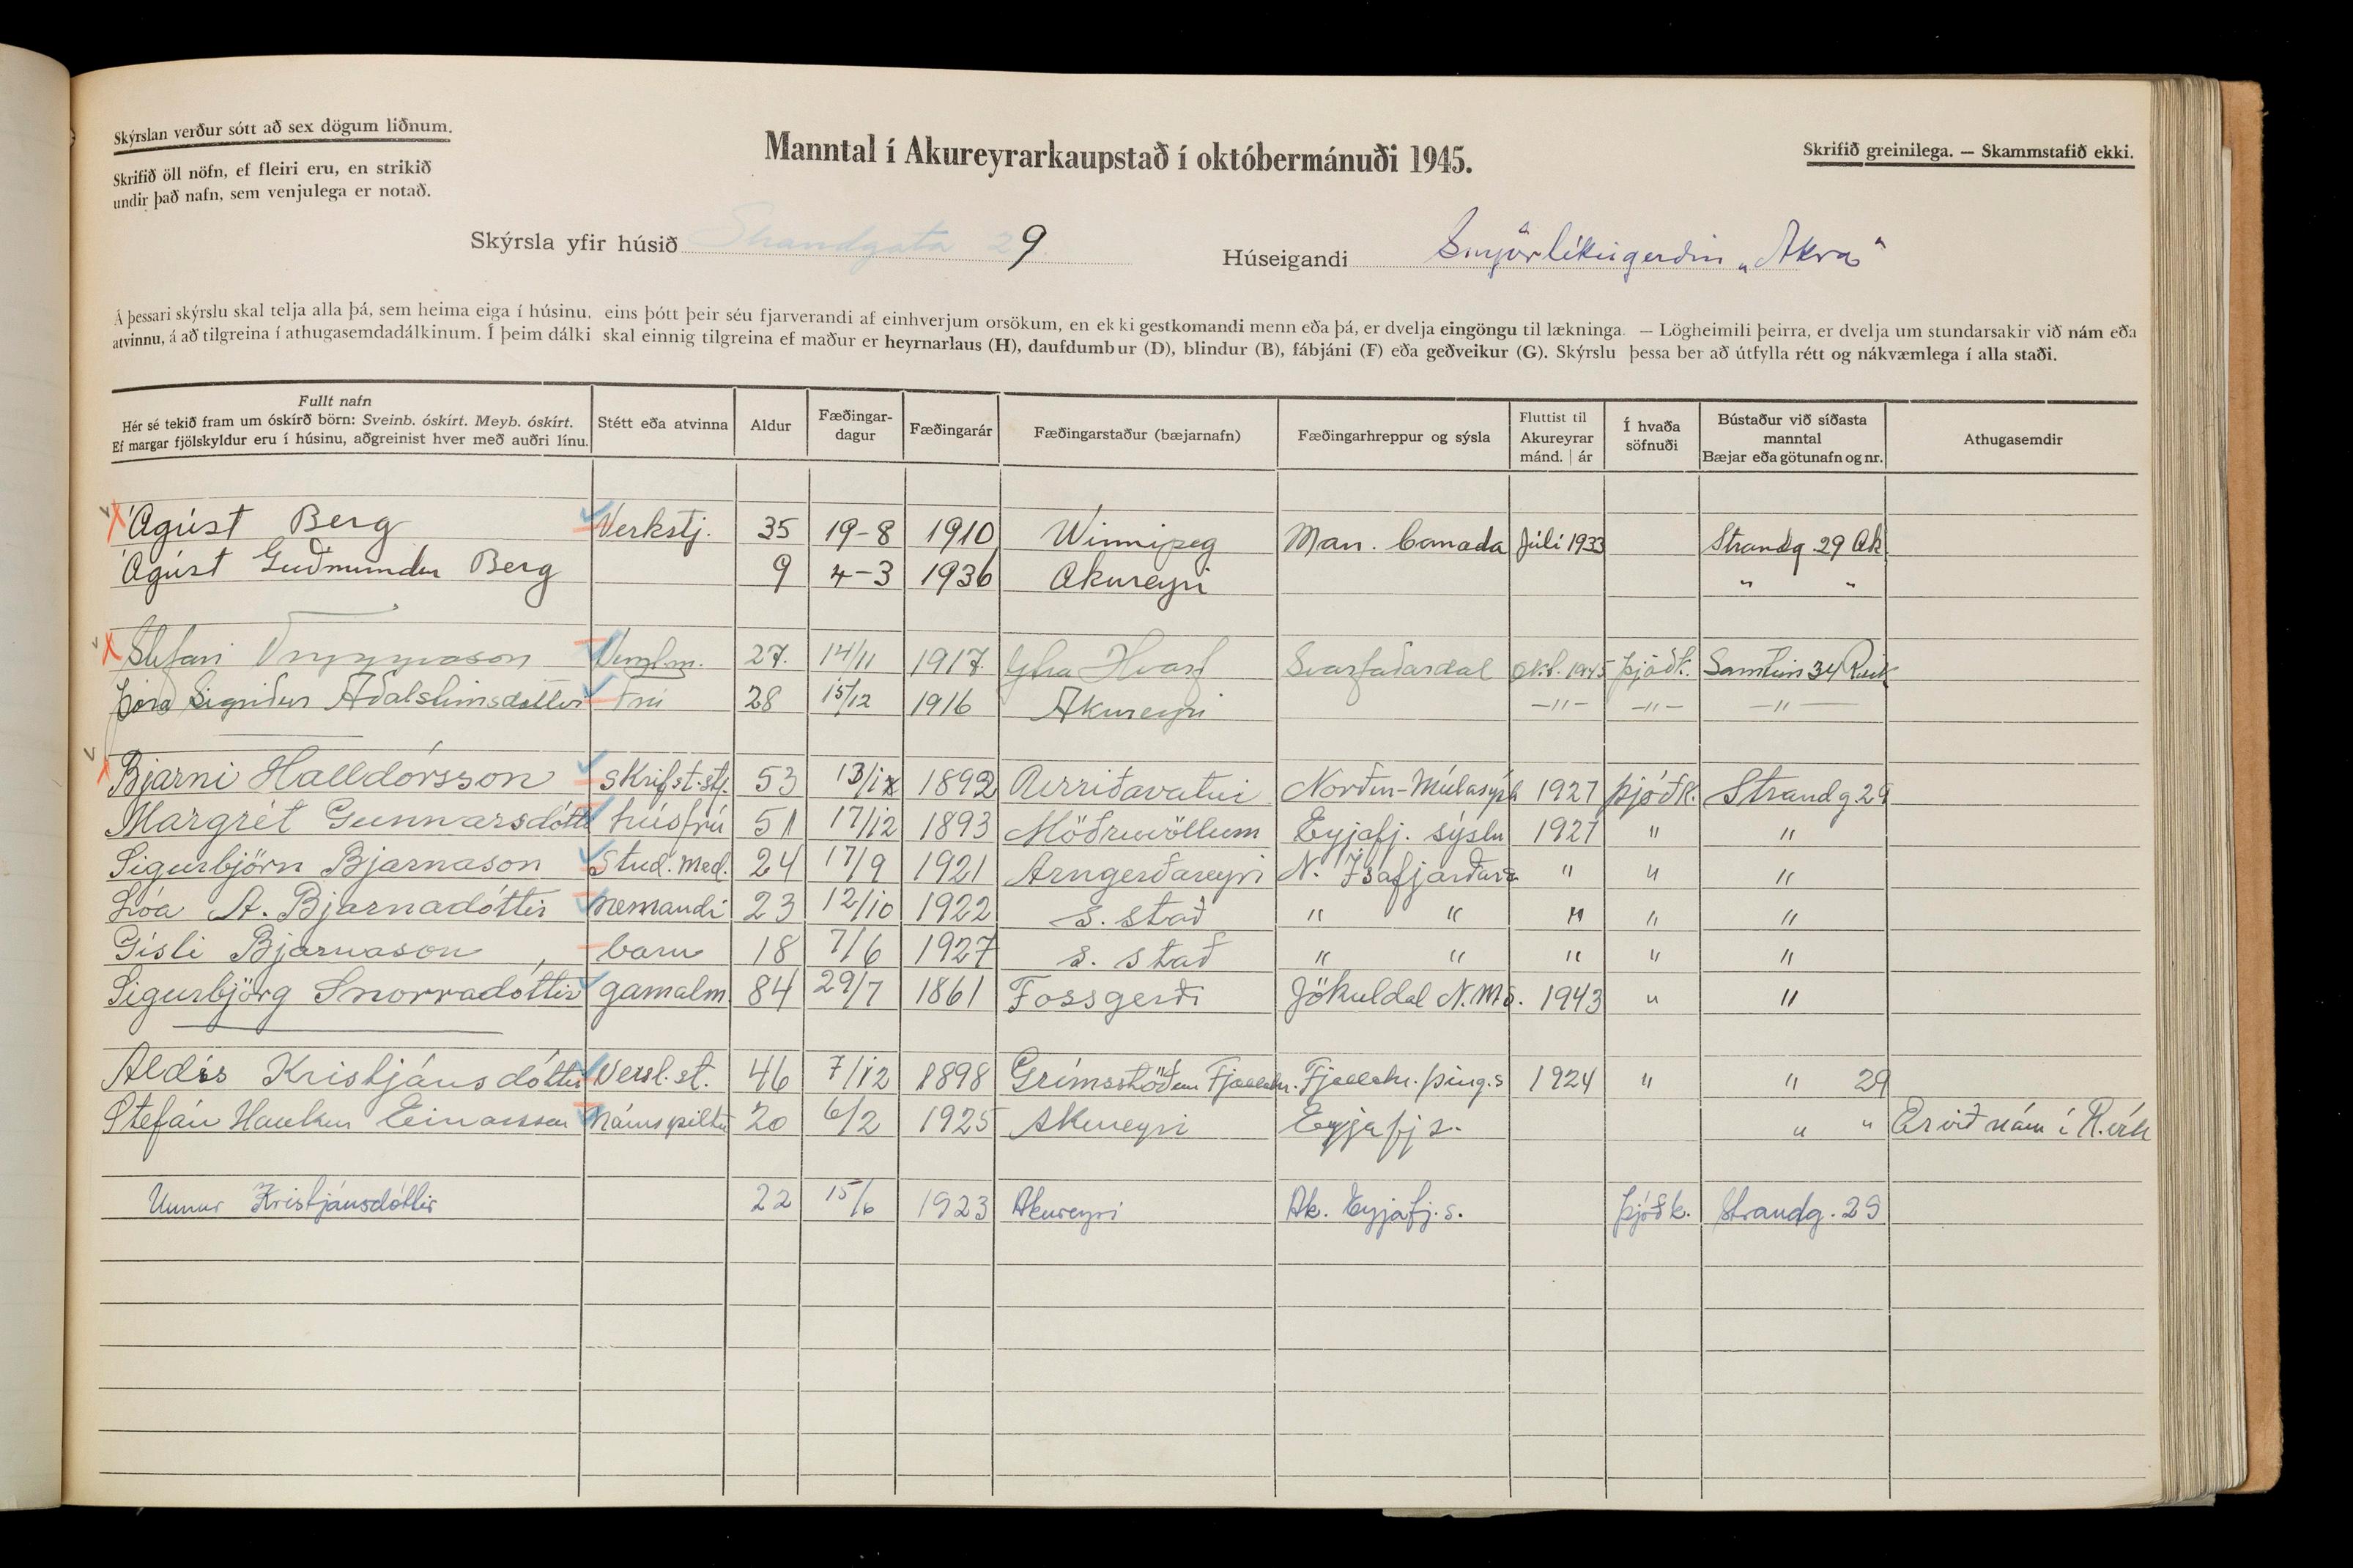 Skýrslan verður sótt að sex dögum liðnum.
Skrifið öll nöfn, ef fleiri eru, en strikið
undir það nafn, sem venjulega er notað.
Manntal í Akureyrarkaupstað í októbermánuði 1945.
Skrifið greinilega. — Skammstafið ekki.
Skýrsla yfir húsið Strandgata 29
Húseigandi Smjörlíkisgerðin „Akra"
Á þessari skýrslu skal telja alla þá, sem heima eiga í húsinu, eins þótt þeir séu fjarverandi af einhverjum orsökum, en ekki gestkomandi menn eða þá, er dvelja eingöngu til lækninga. — Lögheimili þeirra, er dvelja um stundarsakir við nám eða
atvinnu, á að tilgreina í athugasemdadálkinum. Í þeim dálki skal einnig tilgreina ef maður er heyrnarlaus (H), daufdumbur (D), blindur (B), fábjáni (F) eða geðveikur (G). Skýrslu þessa ber að útfylla rétt og nákvæmlega í alla staði.
Fullt nafn
Hér sé tekið fram um óskírð börn: Sveinb. óskírt. Meyb. óskírt.
Ef margar fjölskyldur eru í húsinu, aðgreinist hver með auðri línu.
Stétt eða atvinna
Aldur
Fæðingar-
dagur
Fæðingarár
Fæðingarstaður (bæjarnafn)
Fæðingarhreppur og sýsla
Fluttist til
Akureyrar
mánd. | ár
Í hvaða
söfnuði
Bústaður við síðasta
manntal
Bæjar eða götunafn og nr.
Athugasemdir
Ágúst Berg Verkstj. 35 19-8 1910 Winnipeg Man. Canada Júlí 1933 Strandg 29 Ak
Ágúst Guðmundur Berg 9 4-3 1936 Akureyri " "
Stefán Tryggvason Verzl.m. 27. 14/11 1917. Ytra Hvarf Svarfaðardal Okt. 1945 Þjóðk. Samtún 34 Rvík
Þóra Sigríður Aðalsteinsdóttir Frú 28 15/12 1916 Akureyri -"- -"- -"-
Bjarni Halldórsson skrifst.stj. 53 13/ix 1892 Urriðavatni Norður-Múlasýsla 1927 Þjóðk. Strandg 29
Margrét Gunnarsdóttir húsfrú 51 17/12 1893 Möðruvöllum Eyjafj. sýslu 1927 " "
Sigurbjörn Bjarnason Stud. med. 24 17/9 1921 Arngerðareyri N. Ísafjarðars " " "
Lóa A. Bjarnadóttir nemandi 23 12/10 1922 s. stað " " " " "
Gísli Bjarnason barn 18 7/6 1927 s. stað " " " " "
Sigurbjörg Snorradóttir gamalm 84 29/7 1861 Fossgerði Jökuldal N.M.S. 1943 " "
Aldís Kristjánsdóttir Versl.st. 46 7/12 1898 Grímsstöðum Fjöllum. Fjallahr. Þing.s 1924 " " 29
Stefán Haukur Einarsson Námspiltur 20 6/2 1925 Akureyri Eyjafj s. " " Er við nám í R.vík
Unnur Kristjánsdóttir 22 15/6 1923 Akureyri Ak. Eyjafj. s. Þjóðk. Strandg. 29